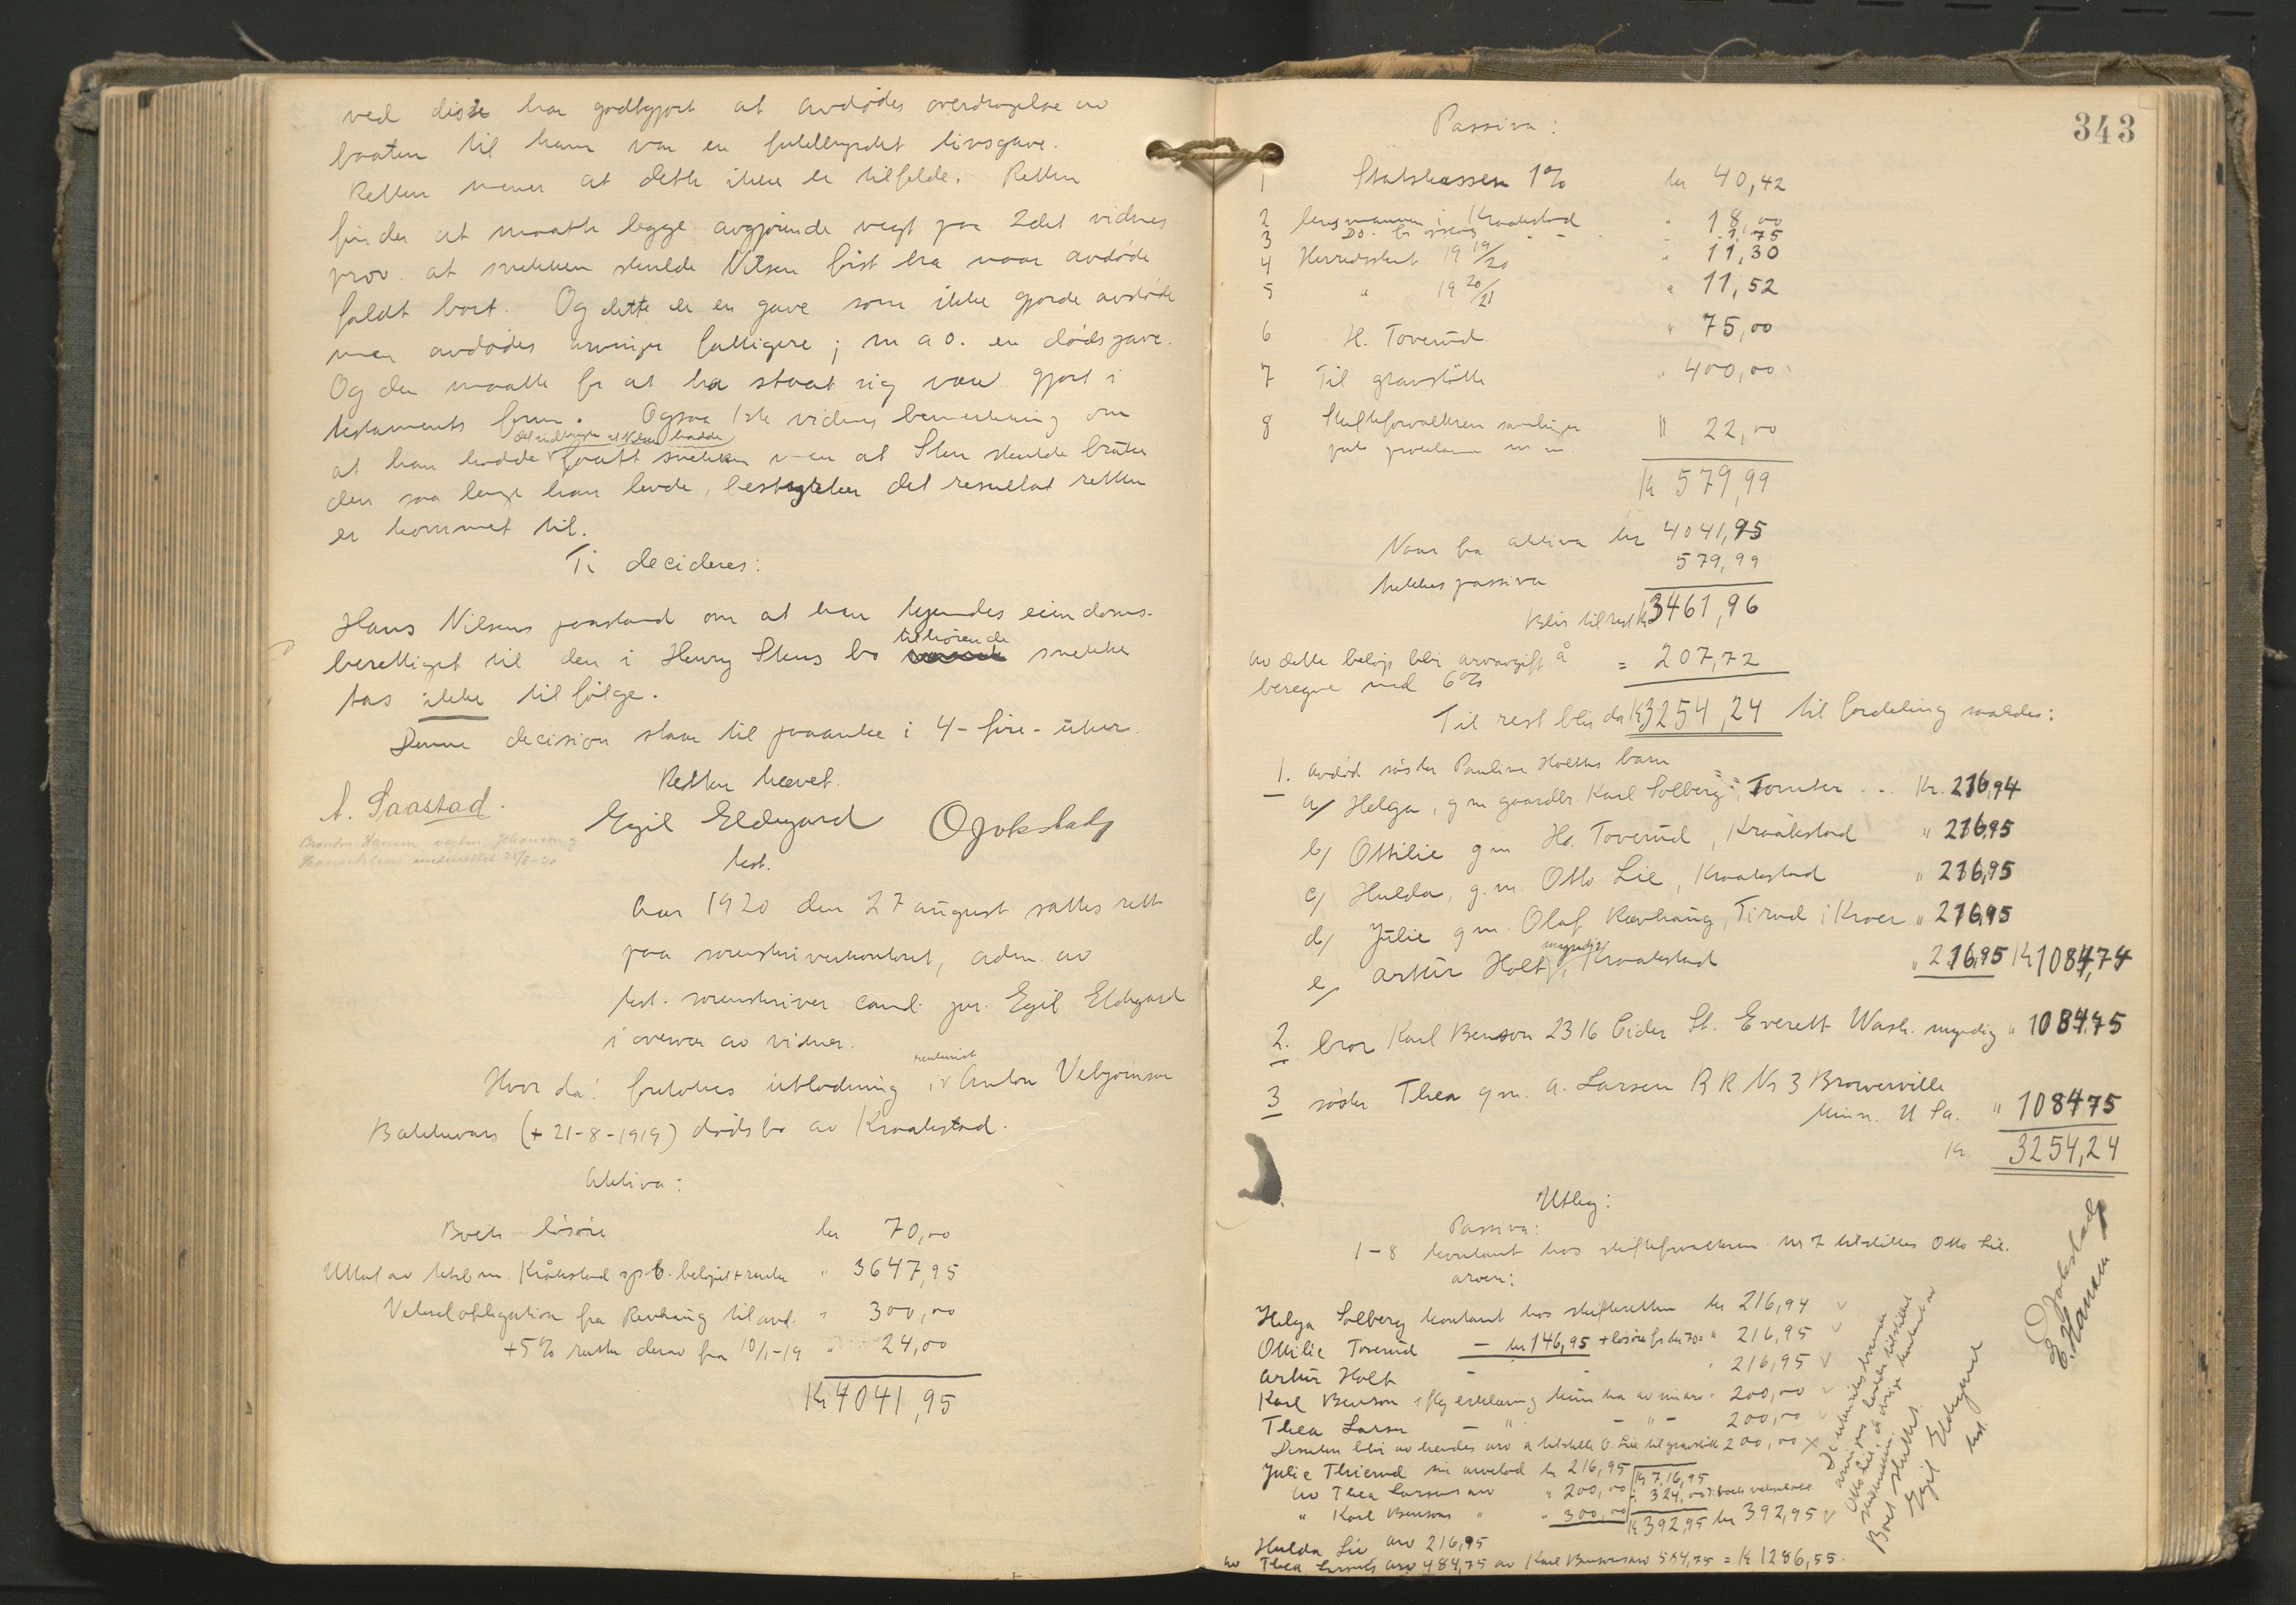 ved disse har godtgjort at avdødes overdragelse av
baaten til ham var en fuldbyrdet livsgave.
Retten mener at dette ikke er tilfelde. Retten
finder at maatte legge avgjørende vegt paa 2det vidnes
prov. at snekken skulde Nilsen først ha naar avdøde
faldt bort. Og dette er en gave som ikke gjorde avdøde
men avdødes arvinger fattigere; m a o. en dødsgave.
Og den maatte for at ha staat sig være gjort i
testaments form. Ogsaa 1ste vidnes bemerkning om
at Nilsen hadde
at han hadde faatt snekken men at Sten skulde bruke
den saa lenge han levde, bestyrker det resultat retten
er kommet til.
Ti decideres:
Hans Nilsens paastand om at han kjendes eiendoms-
tilhørende
berettiget til den i Henry Stens bo snekke
tas ikke tilfølge.
Denne decision staar til paaanke i 4-fire-uker.
Retten hævet.
A. Saastad.
Egil Eldegard OJokstad
kst.
Aar 1920 den 27 august sattes rett
paa sorenskriverkontoret, adm. av
kst. sorenskriver cand. jur. Egil Eldegard
i overvær av vidner.
Hvor da! foretokes utlodning i Anton Vebjørnsen
Bakkevars (+ 21-8-1919) dødsbo av Kraakstad.
Aktiva:
Boets løsøre kr 70,00
Uttat av Kråkstad spb. beløpet + renter " 3647,95
Vekselobligation fra Revhaug til avd. " 300,00
+5% rente derav fra 10/1-19 " 24,00
Kr 4041,95
343
Passiva:
1 Statskassen 1% kr 40,42
2 lensmannen i Kraakstad " 18,00
3 Do. for " 1,75
4 Herredsskat 19 19/20 " 11,30
5 " 19 20/21 " 11,52
6 H. Toverud " 75,00
7 Til gravstøtte " 400,00
8 Skifteforvalteren samlinger " 22,00
porto proklama m m
Kr 579,99
Naar fra aktiva kr 4041,95
trekkes passiva 579,99
Blir til rest Kr 3461,96
av dette beløp blir arveavgift å
beregne med 6% = 207,72
Til rest blir da Kr 3254,24 til fordeling saaledes:
1. avdød søster Pauline Holtes barn
a/ Helga, g m gaardbr. Karl Solberg, Tomter .. Kr. 216,94
b/ Ottilie g m H. Toverud, Kraakstad " 216,95
c/ Hulda, g. m. Otto Lie, Kraakstad " 216,95
d/ Julie g m. Olaf Revhaug, Tirud i Kroer " 216,95
myndig
e/ Artur Holt, Kraakstad " 216,95 Kr 1084,74
2. bror Karl Benson 2316 Cider St. Everett Wash. myndig " 1084,75
3 søster Thea g m. A. Larsen R R Nr 3 Browerville
Minn. U Sa. " 1084,75
Kr. 3254,24
Utleg:
Passiva:
1-8 kontant hos skifteforvalteren nr 7 utstilles Otto Lie.
arven:
Helga Solberg kontant hos skifteretten kr 216,94
Ottilie Toverud — kr 146,95 + løsøre for kr 70= " 216,95
Artur Holt — " 216,95
Karl Benson ifølg erklæring kun ha av sin arv " 200,00
Thea Larsen — " — — " — 200,00
Desuten blir av hendes arv å tilstille O. Lie til gravstøtte 200,00
Julie Thierud sin arvelod kr 216,95 Kr 716,95
av Thea Larsens arv " 200,00 ÷ 324,00
" Karl Bensons " " 300,00 Kr 392,95 kr 392,95
Hulda Lie arv 216,95
av Thea Larsens arv 484,75 av Karl Bensons arv 584,75 = Kr 1286,55.
Otto Lie
Boet sluttet.
Egil Eldegard
kst.
OJokstad
E. Hansen